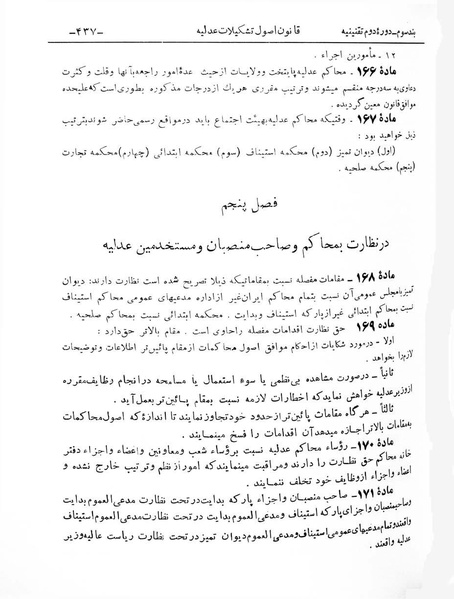 بند سوم ـ دورهٔ دوم تقنینیه
قانون اصول تشکیلات عدلیه
ـ۴۳۷ـ
۱۲ ـ مأمورین اجراء .
مادهٔ ۱۶۶ ـ محاکم عدلیه پایتخت وولایات ازحیث عدهٔ امور راجعه بآنها وقلت وکثرت
دعاوی به سه درجه منقسم میشوند وترتیب مقرری هریك ازدرجات مذکوره بطوری است که علیحده
موافق قانون معین گردیده .
مادهٔ ۱۶۷ ـ وقتیکه محاکم عدلیه بهیئت اجتماع باید درمواقع رسمی حاضر شوند بترتیب
ذیل خواهد بود :
(اول) دیوان تمیز (دوم) محکمه استیناف (سوم) محکمه ابتدائی (چهارم) محکمه تجارت
(پنجم) محکمه صلحیه .
فصل پنجم
در نظارت بمحاکم وصاحب منصبان ومستخدمین عدلیه
مادهٔ ۱۶۸ ـ مقامات مفصله نسبت بمقاماتیکه ذیلا تصریح شده است نظارت دارند : دیوان
تمیز با مجلس عمومی آن نسبت بتمام محاکم ایران غیر ازاداره مدعیهای عمومی محاکم استیناف
نسبت بمحاکم ابتدائی غیرازپارکه استیناف وبدایت . محکمه ابتدائی نسبت بمحاکم صلحیه .
مادهٔ ۱۶۹ ـ حق نظارت اقدامات مفصله راحاوی است . مقام بالاتر حق دارد :
اولا ـ درمورد شکایات ازاحکام موافق اصول محاکمات ازمقام پائین‌تر اطلاعات وتوضیحات
لازم را بخواهد .
ثانیاً ـ درصورت مشاهده بی‌نظمی یا سوء استعمال یا مسامحه درانجام وظایف مقرره
ازوزیر عدلیه خواهش نماید که اخطارات لازمه نسبت بمقام پائین‌تر بعمل آید .
ثالثاً ـ هرگاه مقامات پائین‌تر ازحدود خود تجاوز نمایند تا اندازه‌ای که اصول محاکمات
بمقامات بالاتر اجازه میدهد آن اقدامات را فسخ مینمایند .
مادهٔ ۱۷۰ ـ رؤساء محاکم عدلیه نسبت برؤساء شعب ومعاونین واعضاء واجزاء دفتر
خانه محاکم حق نظارت را دارند ومراقبت مینمایند که امور ازنظم وترتیب خارج نشده و
اعضاء واجزاء ازوظایف خود تخلف ننمایند .
مادهٔ ۱۷۱ ـ صاحب منصبان واجزاء پارکه بدایت درتحت نظارت مدعی العموم بدایت
وصاحبمنصبان واجزای پارکه استیناف ومدعی العموم بدایت درتحت نظارت مدعی العموم استیناف
واقعند وتمام مدعیهای عمومی استیناف ومدعی العموم دیوان تمیز درتحت نظارت ریاست عالیه وزیر
عدلیه واقعند .